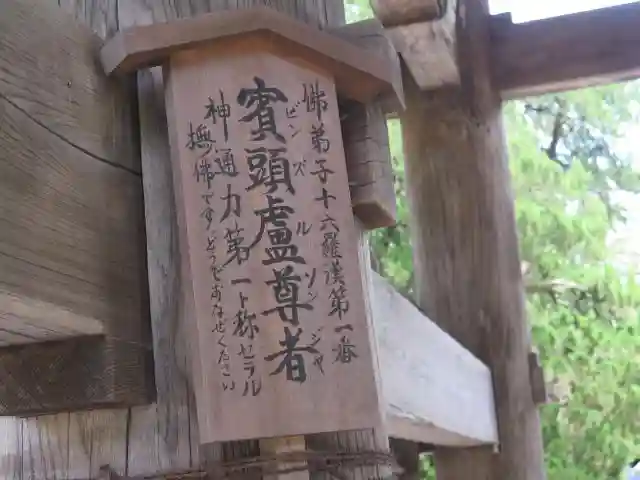 佛弟子十六羅漢第一番
賓頭盧尊者
ビンズルソンジャ
神通力第一ト称セラル
撫佛です。どうぞおなぜください